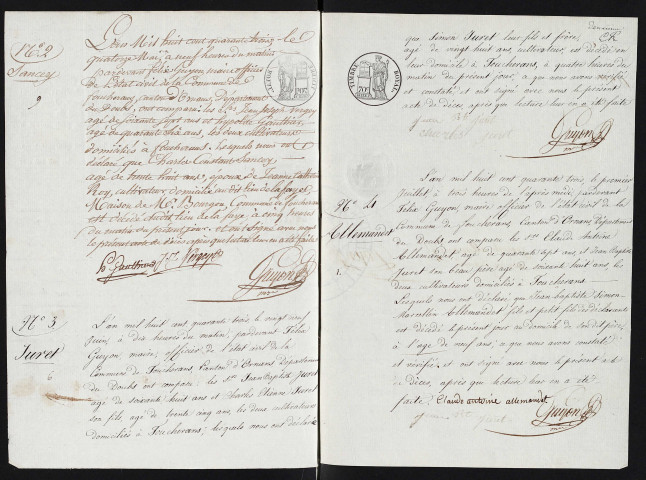 N° 2
Tancey
L'an Mil huit cent quarante trois, le
quatorze Mai, à neuf heures du matin
Pardevant félix Guyon, maire officier
de l'état civil de la Commune de
foucherans, canton d'Ornans, Département
du Doubs, ont comparu les Srs Jean Joseph
agé de soixante sept ans et hypolite Gauthier
agé de quarante six ans, les deux cultivateurs
domiciliés à foucherans. Lesquels nous ont
déclaré que Charles Constant Tancey
agé de trente huit ans, époux de Jeanne
Roy, cultivateur, domicilié au dit lieu de la faye et
Maison de Mr Bourgon, Commune de foucherans
est décédé au dit lieu de la faye, à cinq heures
du matin du présent jour. et ont signé avec nous
le présent acte de décès après que lecture leur en a été faite
h. Gauthier
Guyon
N° 3
Juret
6
L'an mil huit cent quarante trois, le vingt neuf
Juin, à dix heures du matin, pardevant Félix
Guyon, maire, officier de l'état civil de la
Commune de Foucherans, Canton d'Ornans, Département
du Doubs ont comparu les Srs Jean Baptiste Juret
agé de soixante huit ans et Charles Pierre Juret
son fils, agé de trente cinq ans, les deux cultivateurs
domiciliés à Foucherans; lesquels nous ont déclaré
que Simon Juret leur fils et frère,
agé de vingt huit ans, cultivateur, est décédé en
leur domicile à Foucherans, à quatre heures du
matin du présent jour, à que nous avons vérifié
et constaté et ont signé avec nous le présent
acte de décès, après que lecture leur en a été faite
TIMBRE ROYAL
Guyon
N° 4
Allemandet
1.
L'an mil huit cent quarante trois, le premier
Juillet à trois heures de l'après midi, pardevant
Félix Guyon, maire officier de l'état civil de la
Commune de foucherans, Canton d'Ornans, Département
du Doubs ont comparu les Srs Claude Antoine
Allemandet agé de quarante sept ans et Jean Baptiste
Juret son beau père agé de soixante huit ans, les
deux cultivateurs domiciliés à Foucherans.
Lesquels nous ont déclaré que Jean baptiste Simon
Marcellin Allemandet fils et petit fils des déclarants
est décédé le présent jour au domicile de son dit père,
à l'age de neuf ans, à que nous avons constaté
et vérifié, et ont signé avec nous le présent acte
de Décès, après que lecture leur en a été
faite. Claude antoine allemandet
Guyon